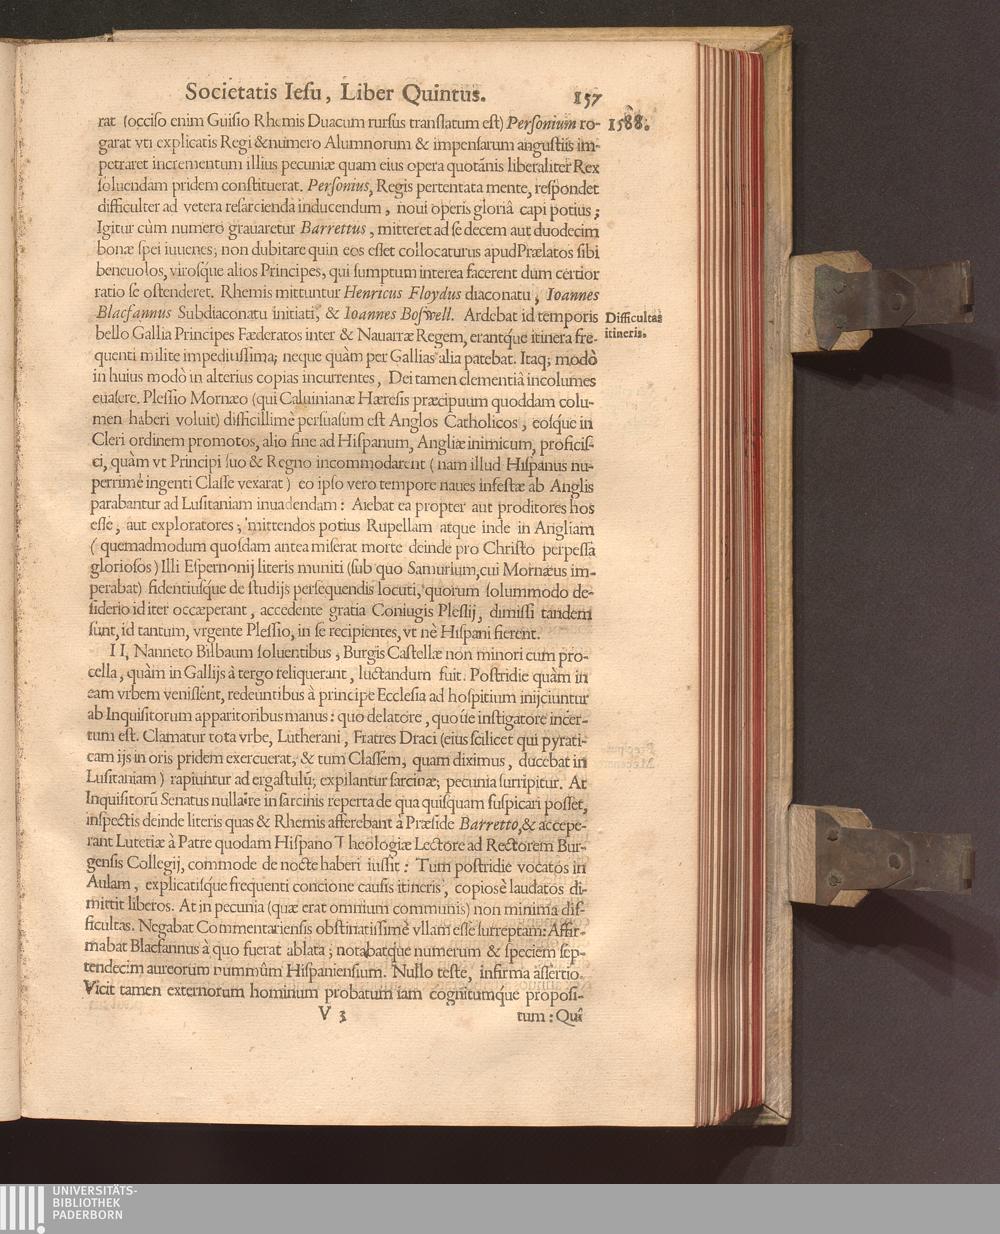 Societatis Iesu, Liber Quintus. 157
rat (occiso enim Guisio Rhemis Duacum rursus translatum est) Personium ro- 1588.
garat vti explicatis Regi & numero Alumnorum & impensarum angustiis im-
petraret incrementum illius pecuniæ quam eius opera quotãnis liberaliter Rex
soluendam pridem constituerat. Personius, Regis pertentata mente, respondet
difficulter ad vetera resarcienda inducendum, noui operis gloriâ capi potius;
Igitur cùm numero grauaretur Barrettus, mitteret ad se decem aut duodecim
bonæ spei iuuenes; non dubitare quin eos esset collocaturus apud Prælatos sibi
beneuolos, virosque alios Principes, qui sumptum interea facerent dum certior
ratio se ostenderet. Rhemis mittuntur Henricus Floydus diaconatu, Ioannes
Blacfannus Subdiaconatu initiati, & Ioannes Boswell. Ardebat id temporis Difficultas
bello Gallia Principes Fæderatos inter & Nauarræ Regem, erantq́ue itinera fre- itineris.
quenti milite impeditissima; neque quàm per Gallias alia patebat. Itaq; modò
in huius modò in alterius copias incurrentes, Dei tamen clementiâ incolumes
euasere. Plessio Mornæo (qui Caluinianæ Hæresis præcipuum quoddam colu-
men haberi voluit) difficillimè persuasum est Anglos Catholicos, eosque in
Cleri ordinem promotos, alio fine ad Hispanum, Angliæ inimicum, proficis-
ci, quàm vt Principi suo & Regno incommodarent (nam illud Hispanus nu-
perrimè ingenti Classe vexarat) eo ipso vero tempore naues infestæ ab Anglis
parabantur ad Lusitaniam inuadendam: Aiebat ea propter aut proditores hos
esse, aut exploratores; mittendos potius Rupellam atque inde in Angliam
(quemadmodum quosdam antea miserat morte deinde pro Christo perpessâ
gloriosos) Illi Espernonij literis muniti (sub quo Samurium, cui Mornæus im-
perabat) fidentiusque de studijs persequendis locuti, quorum solummodo de-
siderio id iter occæperant, accedente gratia Coniugis Plessij, dimissi tandem
sunt, id tantum, vrgente Plessio, in se recipientes, vt nè Hispani fierent.
II, Nanneto Bilbaum soluentibus, Burgis Castellæ non minori cum pro-
cella, quàm in Gallijs à tergo reliquerant, luctandum fuit. Postridie quàm in
eam vrbem venissent, redeuntibus à principe Ecclesia ad hospitium inijciuntur
ab Inquisitorum apparitoribus manus: quo delatore, quo úe instigatore incer-
tum est. Clamatur tota vrbe, Lutherani, Fratres Draci (eius scilicet qui pyrati-
cam ijs in oris pridem exercuerat, & tum Classem, quam diximus, ducebat in
Lusitaniam) rapiuntur ad ergastulũ; expilantur sarcinæ; pecunia surripitur. At
Inquisitorũ Senatus nulla re in sarcinis reperta de qua quisquam suspicari posset,
inspectis deinde literis quas & Rhemis afferebant à Præside Barretto, & accepe-
rant Lutetiæ à Patre quodam Hispano Theologiæ Lectore ad Rectorem Bur-
gensis Collegij, commode de nocte haberi iussit: Tum postridie vocatos in
Aulam, explicatisque frequenti concione causis itineris, copiosè laudatos di-
mittit liberos. At in pecunia (quæ erat omnium communis) non minima dif-
ficultas. Negabat Commentariensis obstinatissimè vllam esse surreptam: Affir-
mabat Blacfannus à quo fuerat ablata; notabatque numerum & speciem sep-
tendecim aureorum nummûm Hispaniensium. Nullo teste, infirma assertio.
Vicit tamen externorum hominum probatum iam cognitumq́ue proposi-
V 3 tum: Quî
UNIVERSITÄTS-
BIBLIOTHEK
PADERBORN